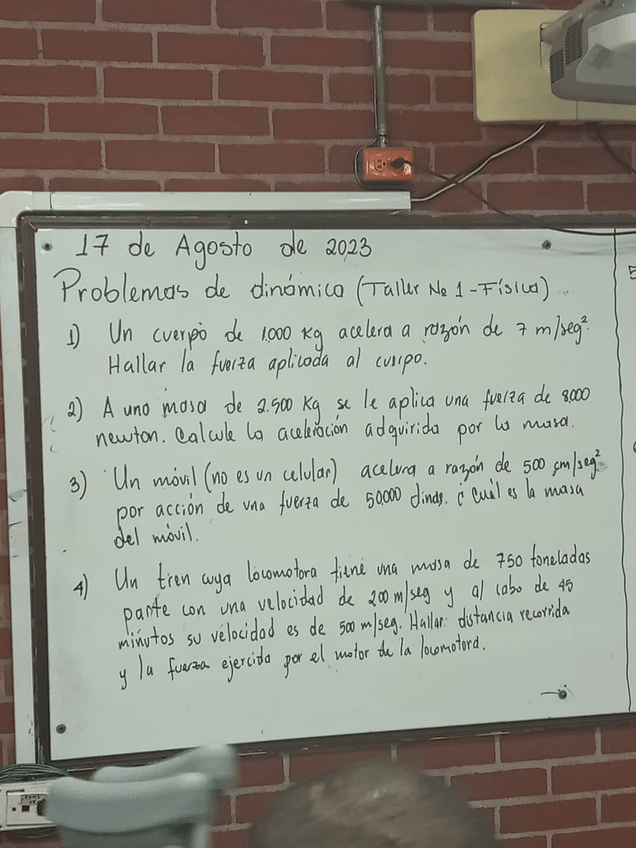 17 de Agosto de 2023
Problemas de dinámica (Taller No 1 - Física)
1) Un cuerpo de 1.000 Kg acelera a razón de 7 m/seg².
Hallar la fuerza aplicada al cuerpo.
2) A una masa de 2.500 Kg se le aplica una fuerza de 8.000
newton. Calcule la aceleración adquirida por la masa.
3) Un móvil (no es un celular) acelera a razón de 500 cm/seg²
por acción de una fuerza de 50.000 dinas. ¿Cuál es la masa
del móvil.
4) Un tren cuya locomotora tiene una masa de 750 toneladas
parte con una velocidad de 200 m/seg y al cabo de 45
minutos su velocidad es de 500 m/seg. Hallar: distancia recorrida
y la fuerza ejercida por el motor de la locomotora.